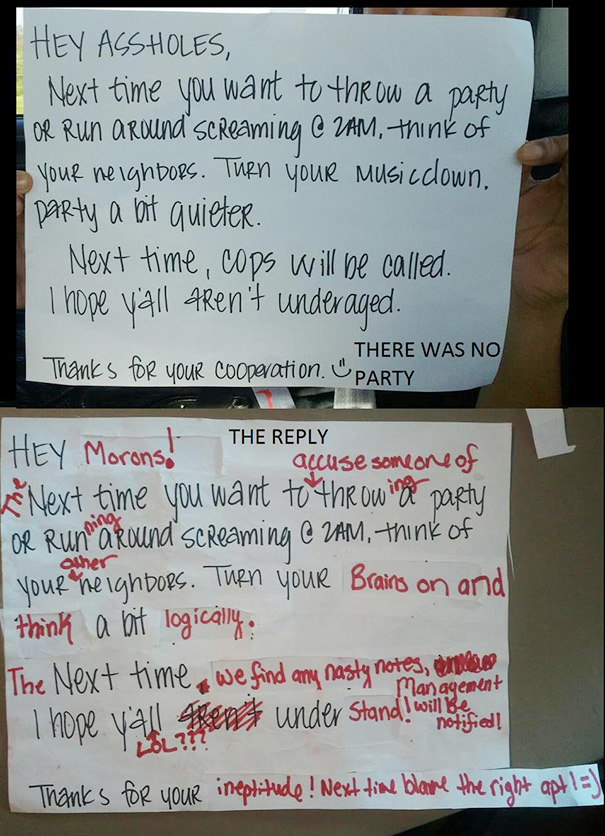 HEY ASSHOLES,
Next time you want to throw a party
or run around screaming @ 2AM, think of
your neighbors. Turn your music down,
party a bit quieter.
Next time, cops will be called.
I hope y'all aren't underaged.
Thanks for your cooperation.
THERE WAS NO
PARTY
THE REPLY
HEY Morons!
accuse someone of
The Next time you want to throwing a party
or running around screaming @ 2AM, think of
your other neighbors. Turn your Brains on and
think a bit logically.
The Next time, we find any nasty notes,
Management
will be
notified!
I hope y'all aren't under Stand!
LOL???
Thanks for your ineptitude! Next time blame the right apt! =)